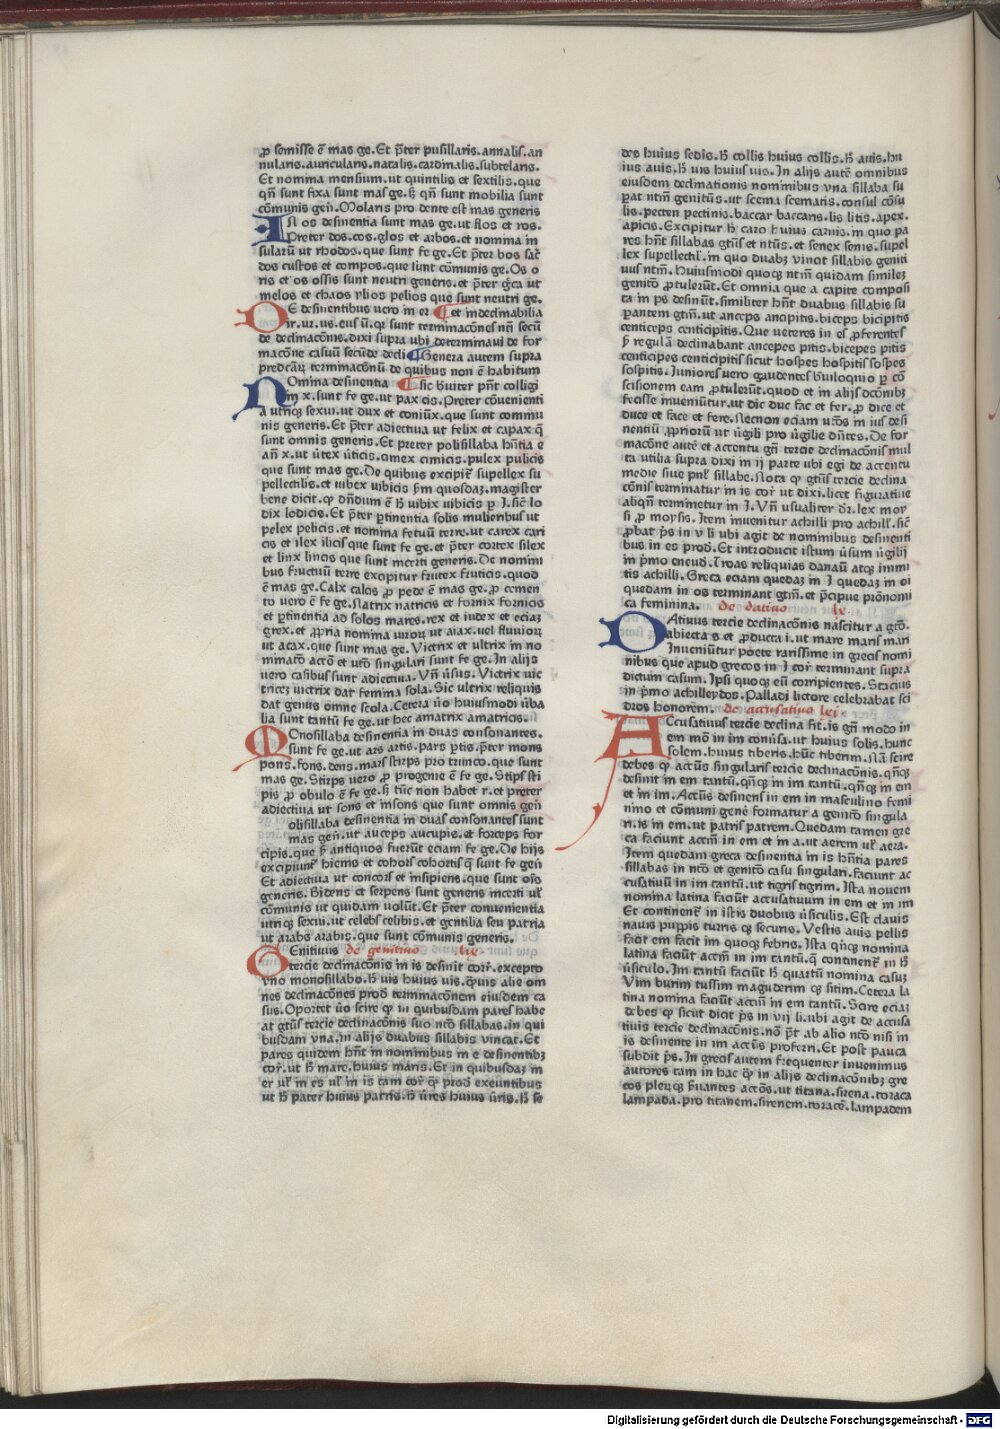 ꝓ semisse ē mas ge.Et p̄ter pusillaris.annalis.an
nularis.auricularis.natalis.cardinalis.subtelaris.
Et nomina mensium.ut quintilis et sextilis.que
qn̄ sunt fixa sunt mas ge.sꝫ qn̄ sunt mobilia sunt
cōmunis gen̄.Molaris pro dente est mas generis
In os desinentia sunt mas ge.ut flos et ros.
Preter dos.cos.glos et arbos.et nomina in
sularū ut rhodos.que sunt fe ge.Et p̄ter bos sac̄
dos custos et compos.que sunt cōmunis ge.Os o
ris et os ossis sunt neutri generis.et p̄ter gr̄ca ut
melos et chaos ylios pelios que sunt neutri ge.
DE desinentibus vero in er ¶et indeclinabilia
ir.ur.us.eus ū.qꝫ sunt terminacōnes nn̄ secū
de declinacōnis.dixi supra ubi determinaui de for
macōne casuū secūde decli ¶Genera autem supra
predcārꝫ terminacōnū de quibus non ē habitum
NOmina desinentia ¶sic bꝛeuiter pn̄t colligi
in x.sunt fe ge.ut pax cis.Preter cōuenienti
a utriqꝫ sexui.ut dux et coniūx.que sunt commu
nis generis.Et p̄ter adiectiua ut felix et capax q̄
sunt omnis generis.Et preter polisillaba hn̄tia e
an̄ x.ut ūtex ūticis.cimex cimicis.pulex pulicis
que sunt mas ge.De quibus excipit᷑ supellex su
pellectilis.et uibex uibicis ẜm quosdaꝫ.magister
bene dicit.qꝫ dn̄dum ē h̄ vibix vibicis ꝑ I.sic̄ lo
dix lodicis.Et p̄ter ꝑtinentia solis mulieribus ut
pelex pelicis.et nomina fetuū terre.ut carex cari
cis et ilex ilicis que sunt fe ge.et p̄ter cortex silex
et linx lincis que sunt incerti generis.De nomini
bus fructuū terre excipitur frutex fruticis.quod
ē mas ge.Calx calcis ꝓ pede ē mas ge.ꝓ cemen
to uero ē fe ge.Natrix natricis et fornix fornicis
et ꝑtinentia ad solos mares.rex et iudex et eciaꝫ
grex.et ꝓpria nomina uirorꝫ ut aiax.uel fluuiorꝫ
ut acax.que sunt mas ge.Victrix et ultrix in no
minatō actō et utō singulari sunt fe ge.In alijs
uero casibus sunt adiectiua.Vn̄ ūsus.Victrix uic
tricꝫ uictrix dat femina sola.Sic ultrix reliquis
dat genus omne scola.Cetera ūo huiusmodi ūba
lia sunt tantū fe ge.ut hec amatrix amatricis.
MOnosillaba desinentia in duas consonantes.
sunt fe ge.ut ars artis.pars ꝑtis.p̄ter mons
pons.fons.dens.mars stirps pro trunco.que sunt
mas ge.Stirps uero ꝓ progenie ē fe ge.Stips sti
pis ꝓ obulo ē fe ge.sꝫ tūc non habet r.et preter
adiectiua ut sons et insons que sunt omnis gen̄
olisillaba desinentia in duas consonantes sunt
mas gen̄.ut auceps aucupis.et forceps for
cipis.que ẜ antiquos fuerūt eciam fe ge.De hijs
excipiunt᷑ hiems et cohors cohortis q̄ sunt fe gen̄
Et adiectiua ut concors et insipiens.que sunt oīs
generis.Bidens et serpens sunt generis incerti ul᷑
cōmunis ut quidam uolūt.Et p̄ter conuenientia
utriqꝫ sexui.ut celebs celibis.et gentilia seu patria
ut arabs arabis.que sunt cōmunis generis.
GEnitiuus de genitiuo
tercie declinacōnis in is desinit corr̄.excepto
vno monosillabo.h̄ uis huius uis.qꝫuis alie om
nes declinacōnes prod̄ terminacōnem eiusdem ca
sus.Oportet ūo scire qꝫ in quibusdam pares habe
at gtūs tercie declinacōnis suo ntō sillabas.in qui
busdam vna.in alijs duabus sillabis vincat.Et
pares quidem hn̄t in nominibus in e desinentibꝫ
cor̄.ut h̄ mare.huius maris.Et in quibusdaꝫ in
er ul᷑ in es ul᷑ in is tam cor̄ qꝫ prod̄ exeuntibus
ut h̄ pater huius patris.h̄ ūres huius ūris.h̄ se
des huius sedis.h̄ collis huius collis.h̄ auis.hu
ius auis.h̄ uis huius uis.In alijs autē omnibus
eiusdem declinationis nominibus vna sillaba su
ꝑat ntm̄ genitūs.ut scema scematis.consul cōsu
lis.pecten pectinis.baccar baccaris.lis litis.apex.
apicis.Excipitur h̄ caro huius carnis.in quo pa
res hn̄t sillabas gtūs et ntūs.et senex senis.supel
lex supellectil᷑.in quo duabꝫ vincit sillabis geniti
uus ntm̄.Huiusmodi quoqꝫ ntm̄ quidam similez
genitō ꝓtulerūt.Et omnia que a capite composi
ta in ps desinūt.similiter hn̄t duabus sillabis su
ꝑantem gtm̄.ut anceps ancipitis.biceps bicipitis
centiceps centicipitis.Que ueteres in es ꝓferentes
ẜ regulā declinabant ancepes pitis.bicepes pitis
centicipes centicipitis sicut hospes hospitis sospes
sospitis.Juniores vero gaudentes bꝛeuiloquio ꝑ cō
scisionem eam ꝓtulerūt.quod et in alijs dcōnibꝫ
fecisse inueniūtur.ut dic duc fac et fer.ꝓ dice et
duce et face et fere.Necnon eciam utōs in ius desi
nentiū ꝓpriorū ut ūgili pro ūgilie dn̄tes.De for
macōne autē et accentu gn̄ tercie declinacōnis mul
ta utilia supra dixi in ij parte ubi egi de accentu
medie siue pnl᷑ sillabe.Nota qꝫ gtūs tercie declina
cōnis terminatur in is cor̄ ut dixi.licet figuratiue
aliqn̄ terminetur in I.Vn̄ usualiter dr̄.lex moy
si ꝓ moysis.Item inuenitur achilli pro achill᷑.sic̄
ꝓbat p̄s in v li ubi agit de nominibus desinenti
bus in es prod̄.Et introducit istum ūsum ūgilij
in p̄mo eneyd̄.Troas reliquias danaū atqꝫ immi
tis achilli.Greca eciam quedaꝫ in I quedaꝫ in oi
quedam in os terminant gtm̄.et p̄cipue ꝓnōmi
ca feminina. de datiuo
DAtiuus tercie declinacōnis nascitur a gtō.
abiecta s et ꝓducta i.ut mare maris mari
Inueniūtur poete rarissime in grecis nomi
nibus que apud grecos in I cor̄ terminant supra
dictum casum.Ipsi quoqꝫ eū corripientes.Stacius
in p̄mo achilleydos.Palladi litore celebrabat sci
ros honorem. de accusatiuo
ACcusatiuus tercie declina fit.is gn̄ modo in
em mō in im cōuīsa.ut huius solis.hunc
solem.huius tiberis.hūc tiberim.Nā scire
debes qꝫ actūs singularis tercie declinacōnis.qn̄qꝫ
desinit in em tantū.qn̄qꝫ in im tantū.qn̄qꝫ in em
et in im.Accūs desinens in em in masculino femi
nino et cōmuni genē formatur a genitō singula
ri.is in em.ut patris patrem.Quedam tamen gre
ca faciunt accm̄ in em et in a.ut aerem ul᷑ aera.
Item quedam greca desinentia in is hn̄tia pares
sillabas in ntō et genitō casu singulari.faciunt ac
cusatiuū in im tantū.ut tigris tigrim.Ista nouem
nomina latina faciūt accusatiuum in em et in im
Et continent᷑ in istis duobus ūsiculis.Est clauis
nauis puppis turris qꝫ securis.Vestis auis pellis
facit em facit im quoqꝫ febris.Ista qn̄qꝫ nomina
latina faciūt accm̄ in im tantū.q̄ continent᷑ in h̄
ūsiculo.Im tantū faciūt h̄ quartū nomina casuꝫ
Vim burim tussim maguderim qꝫ sitim.Cetera la
tina nomina faciūt accm̄ in em tantū.Scire eciaꝫ
debes qꝫ sicut dicit p̄s in vij li.ubi agit de accusa
tiuis tercie declinacōnis.nō p̄t ab alio ntō nisi in
is desinente in im accūs proferri.Et post pauca
subdit p̄s.In grecis autem frequenter inuenimus
autores tam in hac qꝫ in alijs declinacōnibꝫ gre
cos plerūqꝫ ẜuantes actōs.ut titana.sirena.toraca
lampada.pro titanem.sirenem.toracē.lampadem
Digitalisierung gefördert durch die Deutsche Forschungsgemeinschaft - DFG